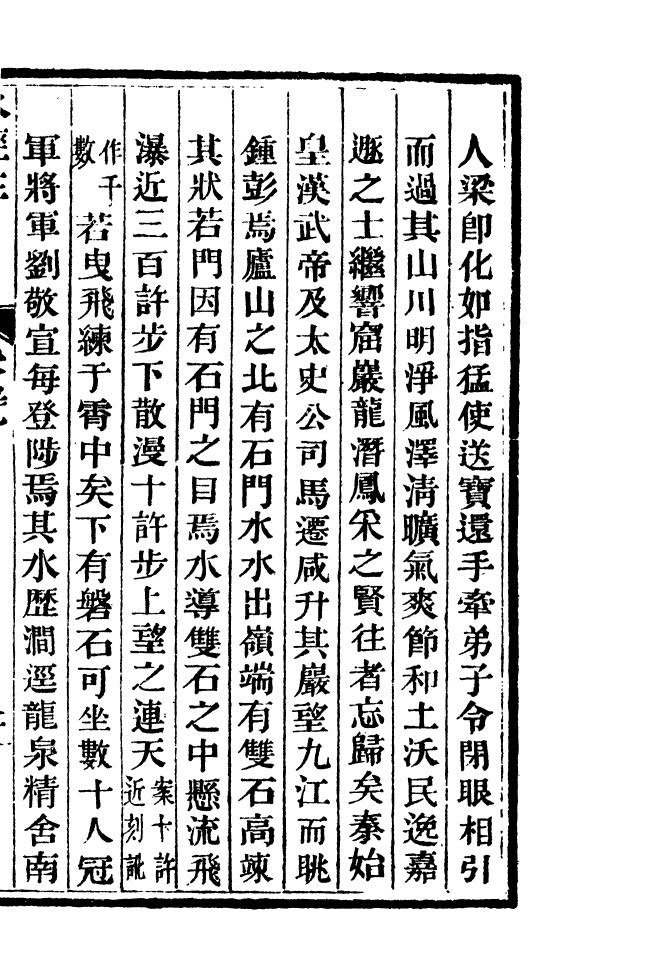 人梁卽化如指猛使送寶還手牽弟子令閉眼相引
而過其山川明淨風澤清曠氣爽節和土沃民逸嘉
遯之士繼響窟巖龍潛鳳采之賢往者忘歸矣秦始
皇漢武帝及太史公司馬遷咸升其巖望九江而眺
鍾彭焉廬山之北有石門水水出嶺端有雙石高竦
其狀若門因有石門之目焉水導雙石之中懸流飛
瀑近三百許步下散漫十許步上望之連天案十許近刻訛
作千數若曳飛練于霄中矣下有磐石可坐數十人冠
軍將軍劉敬宣每登陟焉其水歷澗逕龍泉精舍南